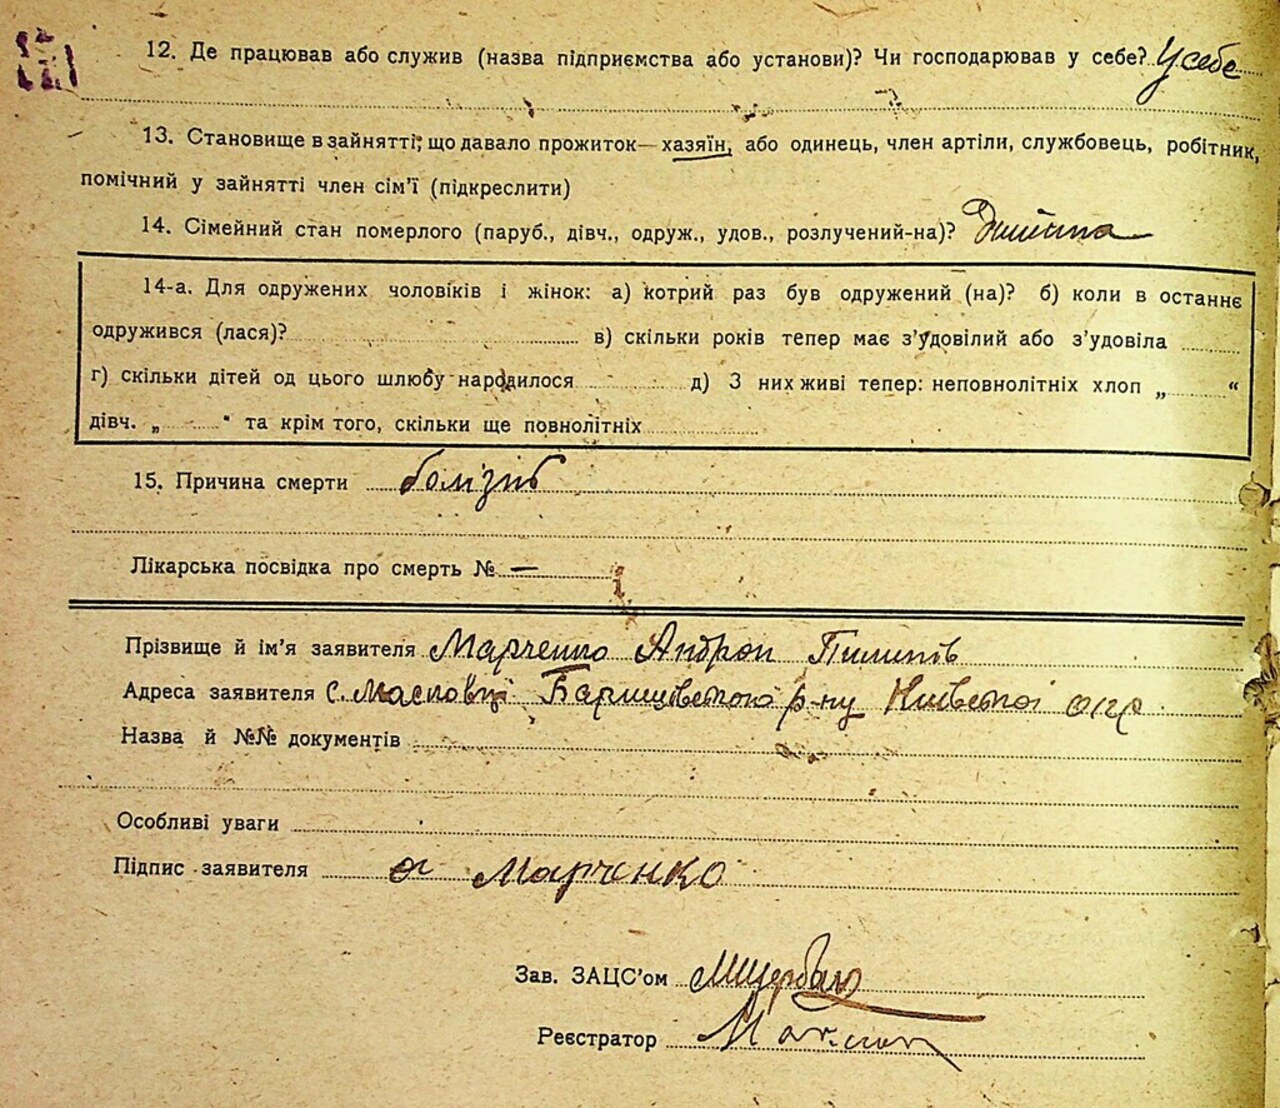 12. Де працював або служив (назва підприємства або установи)? Чи господарював у себе? У себе
13. Становище в зайнятті, що давало прожиток—хазяїн, або одинець, член артіли, службовець, робітник,
помічний у зайнятті член сім'ї (підкреслити)
14. Сімейний стан померлого (паруб., дівч., одруж., удов., розлучений-на)?
14-а. Для одружених чоловіків і жінок: а) котрий раз був одружений (на)? б) коли в останнє
одружився (лася)? в) скільки років тепер має з'удовілий або з'удовіла
г) скільки дітей од цього шлюбу народилося д) З них живі тепер: неповнолітніх хлоп „ “
дівч. „ “ та крім того, скільки ще повнолітніх
15. Причина смерти болізнь
Лікарська посвідка про смерть № —
Прізвище й ім'я заявителя Марченко Андрон Пилипів
Адреса заявителя с. Масковці Баришівського р-ну Київської окр
Назва й №№ документів
Особливі уваги
Підпис заявителя Марченко
Зав. ЗАЦС'ом
Реєстратор